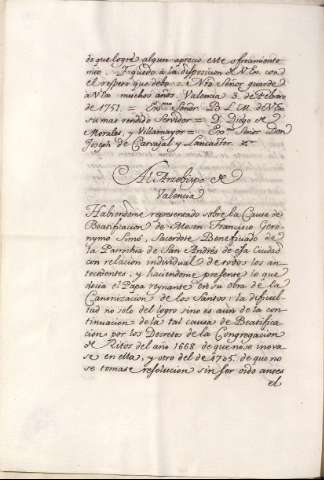 de que logre algun aprecio este ofrecimiento
mio. Y quedo à la disposicion de V.Ex. con
el respeto que debo. = Nro Señor guarde
à V.Ex. muchos años. Valencia 3. de Febrero
de 1751. = Exmo. Señor. B. L. M. de V.Ex
su mas rendido Servidor = D. Diego de
Morales, y Villamayor = Exmo. Señor Don
Joseph de Carvajal y Lancaster. &c.
Al Arzobispo de
Valencia
Habiendome representado sobre la Causa de
Beatificacion de Mosen Francisco Gero-
nymo Simó, Sacerdote Beneficiado de
la Parrochia de San Andrés de esa Ciudad
con relacion individual de todos los an-
tecedentes; y haciendome presente lo que
decia el Papa reynante en su obra de la
Canonizacion de los Santos: la dificul-
tad no solo del logro sino es aùn de la con-
tinuacion de la tal causa de Beatifica-
cion por los Decretos de la Congregacion
de Ritos del año 1668. de que no se inova-
se en ella, y otro del de 1765. de que no
se tomase resolucion sin ser oido antes
el